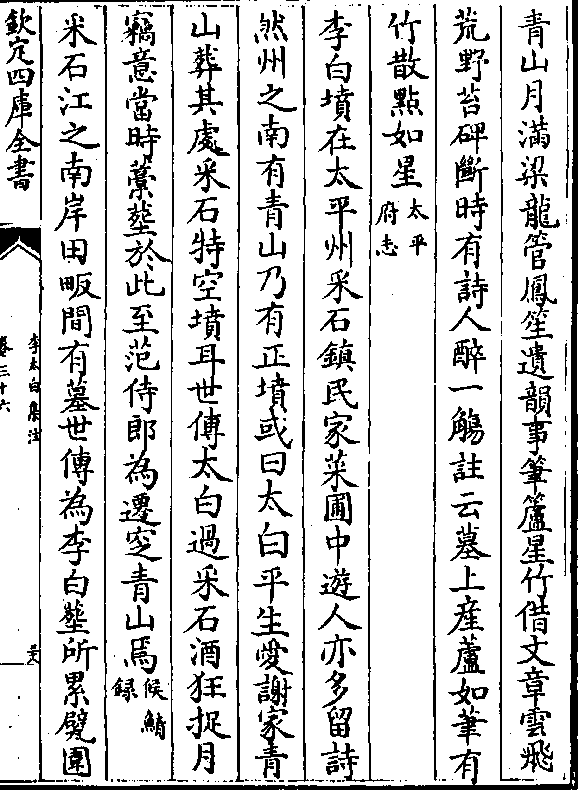 青山月滿梁龍管鳳笙遺韻事筆蘆星竹借文章雲飛
荒野苔碑斷時有詩人醉一觴註云墓上産蘆如筆有
竹散點如星太平府志
李白墳在太平州采石鎮民家菜圃中遊人亦多留詩
然州之南有青山乃有正墳或曰太白平生愛謝家青
山葬其處采石特空墳耳世傳太白過采石酒狂捉月
竊意當時藁塟於此至范侍郎為遷窆青山焉侯鯖録
采石江之南岸田畈間有墓世傳為李白塟所累甓圍
欽定四庫全書
李太白集注
卷三十六